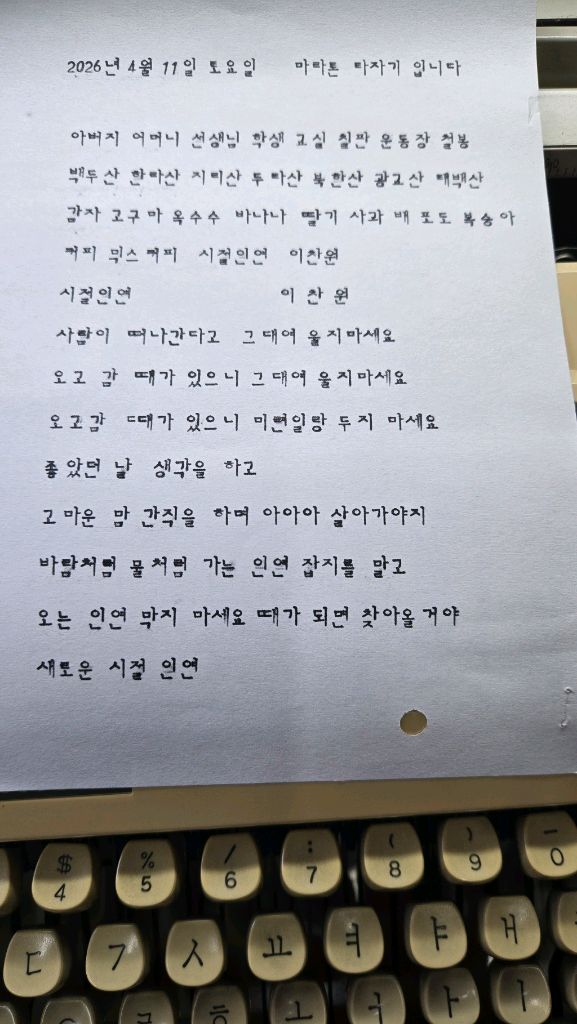 2026년 4월 11일 토요일 마라톤 타자기 입니다
아버지 어머니 선생님 학생 교실 칠판 운동장 철봉
백두산 한라산 지리산 두타산 북한산 광교산 태백산
감자 고구마 옥수수 바나나 딸기 사과 배 포도 복숭아
커피 믹스커피 시절인연 이찬원
시절인연 이 찬 원
사람이 떠나간다고 그대여 울지마세요
오고 감 때가 있으니 그대여 울지마세요
오고감 때가 있으니 미련일랑 두지 마세요
좋았던 날 생각을 하고
고마운 맘 간직을 하며 아아아 살아가야지
바람처럼 물처럼 가는 인연 잡지를 말고
오는 인연 막지 마세요 때가 되면 찾아올거야
새로운 시절 인연
$ % / : ( ) _
4 5 6 7 8 9 0
ㄷ ㄱ ㅅ ㅛ ㅕ ㅑ ㅐ
ㅎ ㅗ ㅓ ㅏ ㅣ